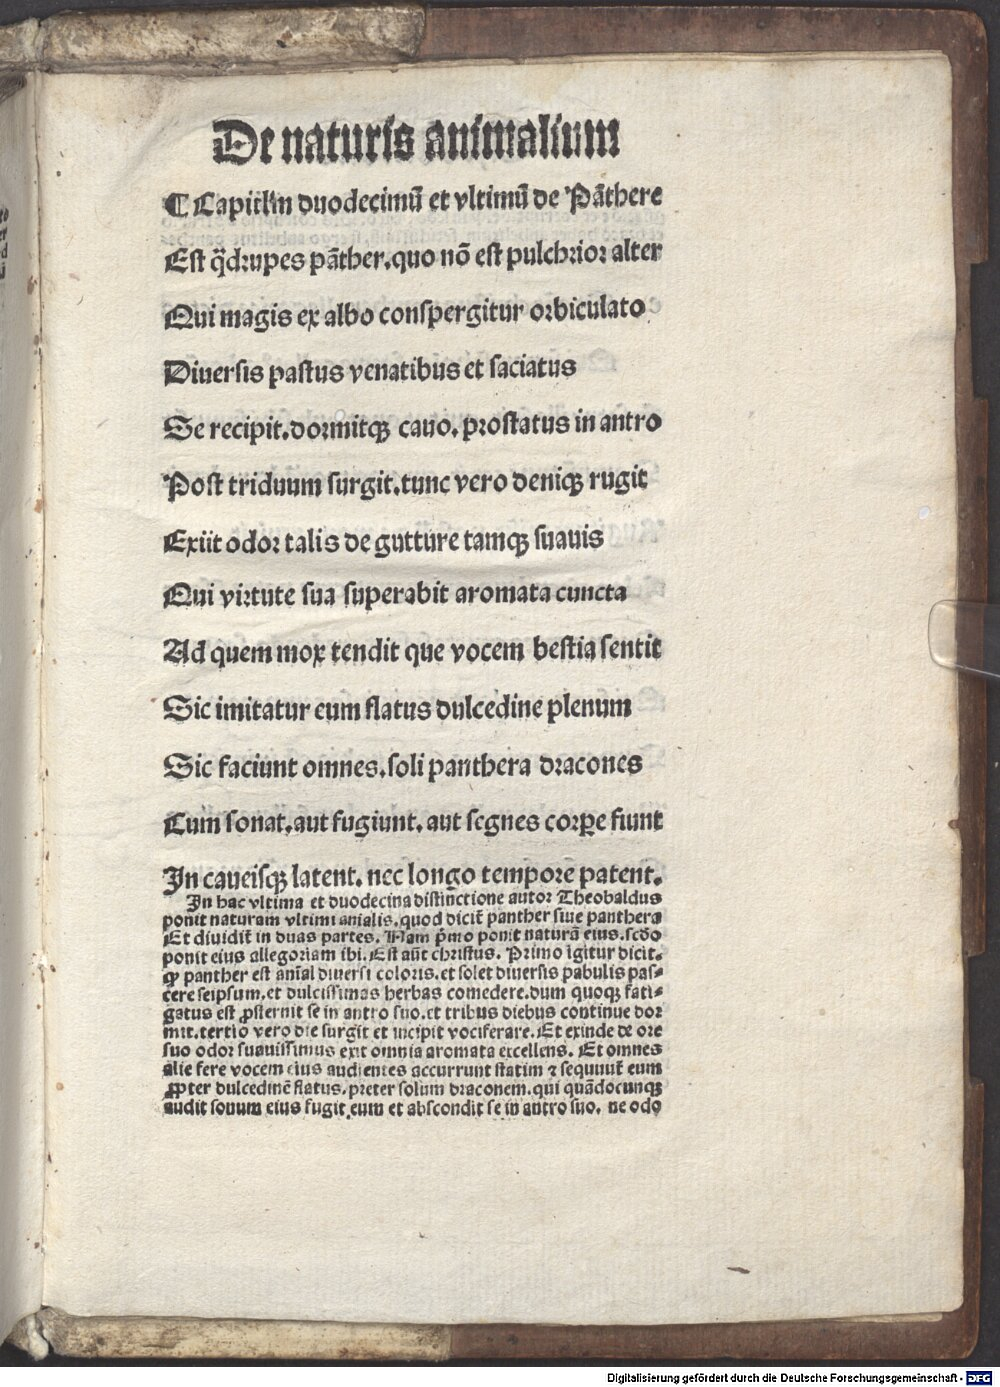 De naturis animalium
¶ Capitlm duodecimū et vltimū de Pāthere
Est q̈drupes pāther.quo nō est pulchrior alter
Qui magis ex albo conspergitur orbiculato
Diuersis pastus venatibus et saciatus
Se recipit.dormitqꝫ cauo.prostatus in antro
Post triduum surgit.tunc vero deniqꝫ rugit
Exiit odor talis de gutture tamqꝫ suauis
Qui virtute sua superabit aromata cuncta
Ad quem mox tendit que vocem bestia sentit
Sic imitatur eum flatus dulcedine plenum
Sic faciunt omnes.soli panthera dracones
Cum sonat.aut fugiunt.aut segnes corꝑe fiunt
In caueisqꝫ latent. nec longo tempore patent.
In hac vltima et duodecina distinctione autor Theobaldus
ponit naturam vltimi anialis.quod dicit̄ panther siue panthera
Et diuidit̄ in duas partes. Nam p̄mo ponit naturā eius.scd̄o
ponit eius allegoriam ibi. Est aūt christus. Primo igitur dicit.
ꝙ panther est anīal diuersi coloris.et solet diuersis pabulis pas⸗
cere seipsum.et dulcissimas herbas comedere.dum quoqꝫ fati⸗
gatus est ꝓsternit se in antro suo.et tribus diebus continue dor
mit.tertio vero die surgit et incipit vociferare. Et exinde de ore
suo odor suauissimus exit omnia aromata excellens. Et omnes
alie fere vocem eius audientes accurrunt statim ⁊ sequunt̄ eum
ꝓpter dulcedinē flatus.preter solum draconem.qui quādocunqꝫ
audit sonum eius fugit eum et abscondit se in antro suo. ne odo
Digitalisierung gefördert durch die Deutsche Forschungsgemeinschaft - DFG